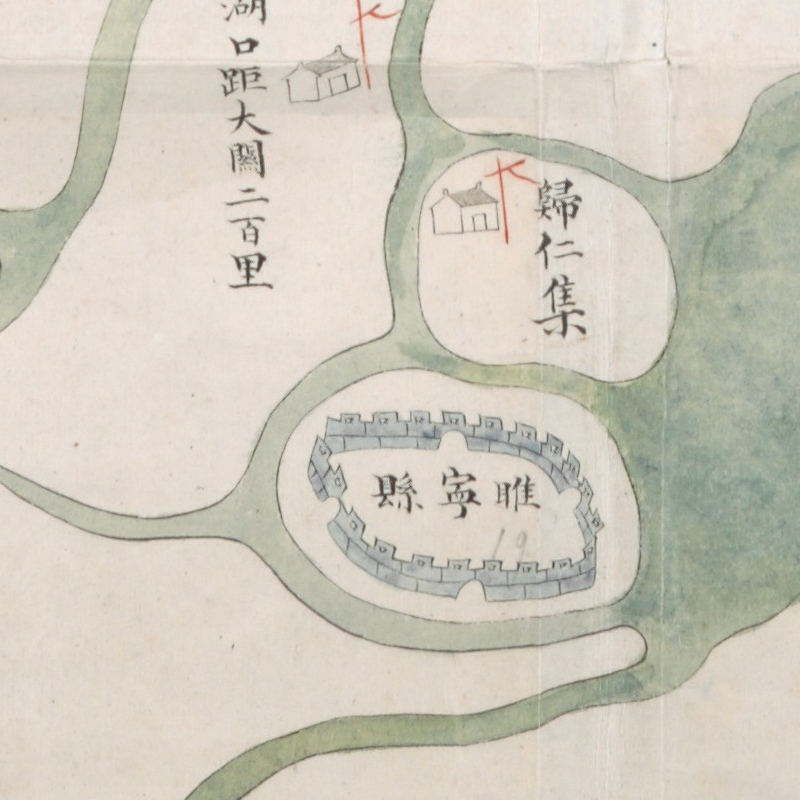 歸仁集
湖口距大關二百里
睢寧縣
19